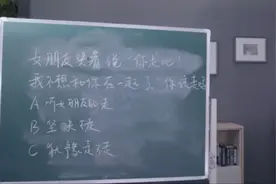 女朋友哭着说"你走吧!
我不想和你在一起了"你该走
A 听女朋友的走
B 坚决不走
C 犹豫